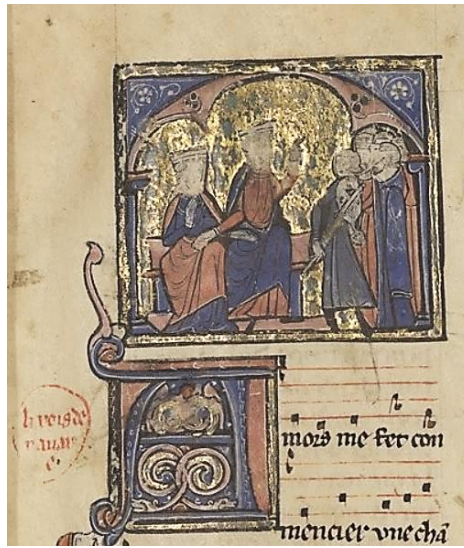 li rois de
nauarr
e.
Amors me fet con
mencier vne chã